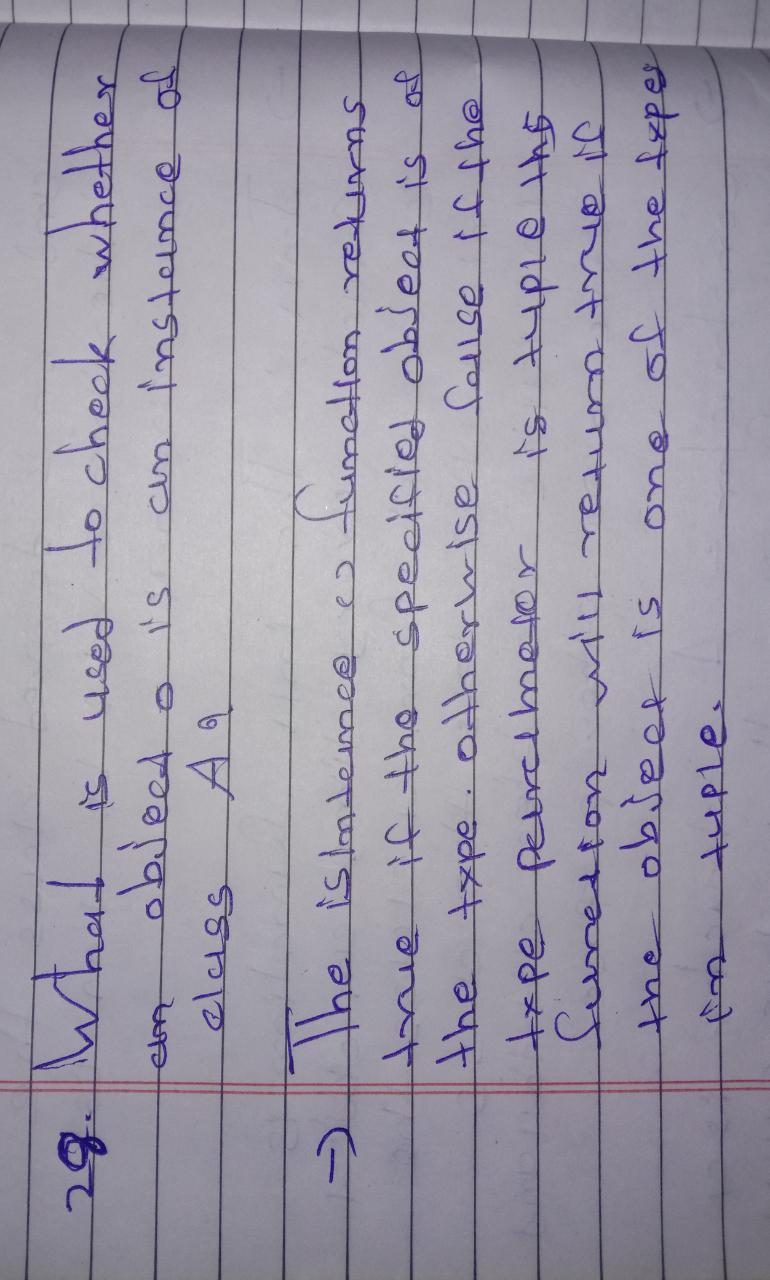 28. What is used to check whether
an object o is an instance of
class A?
→ The isintance () function returns
true if the specified object is of
the type. otherwise false if the
type parameter is tuple this
function will return true if
the object is one of the types
in tuple.